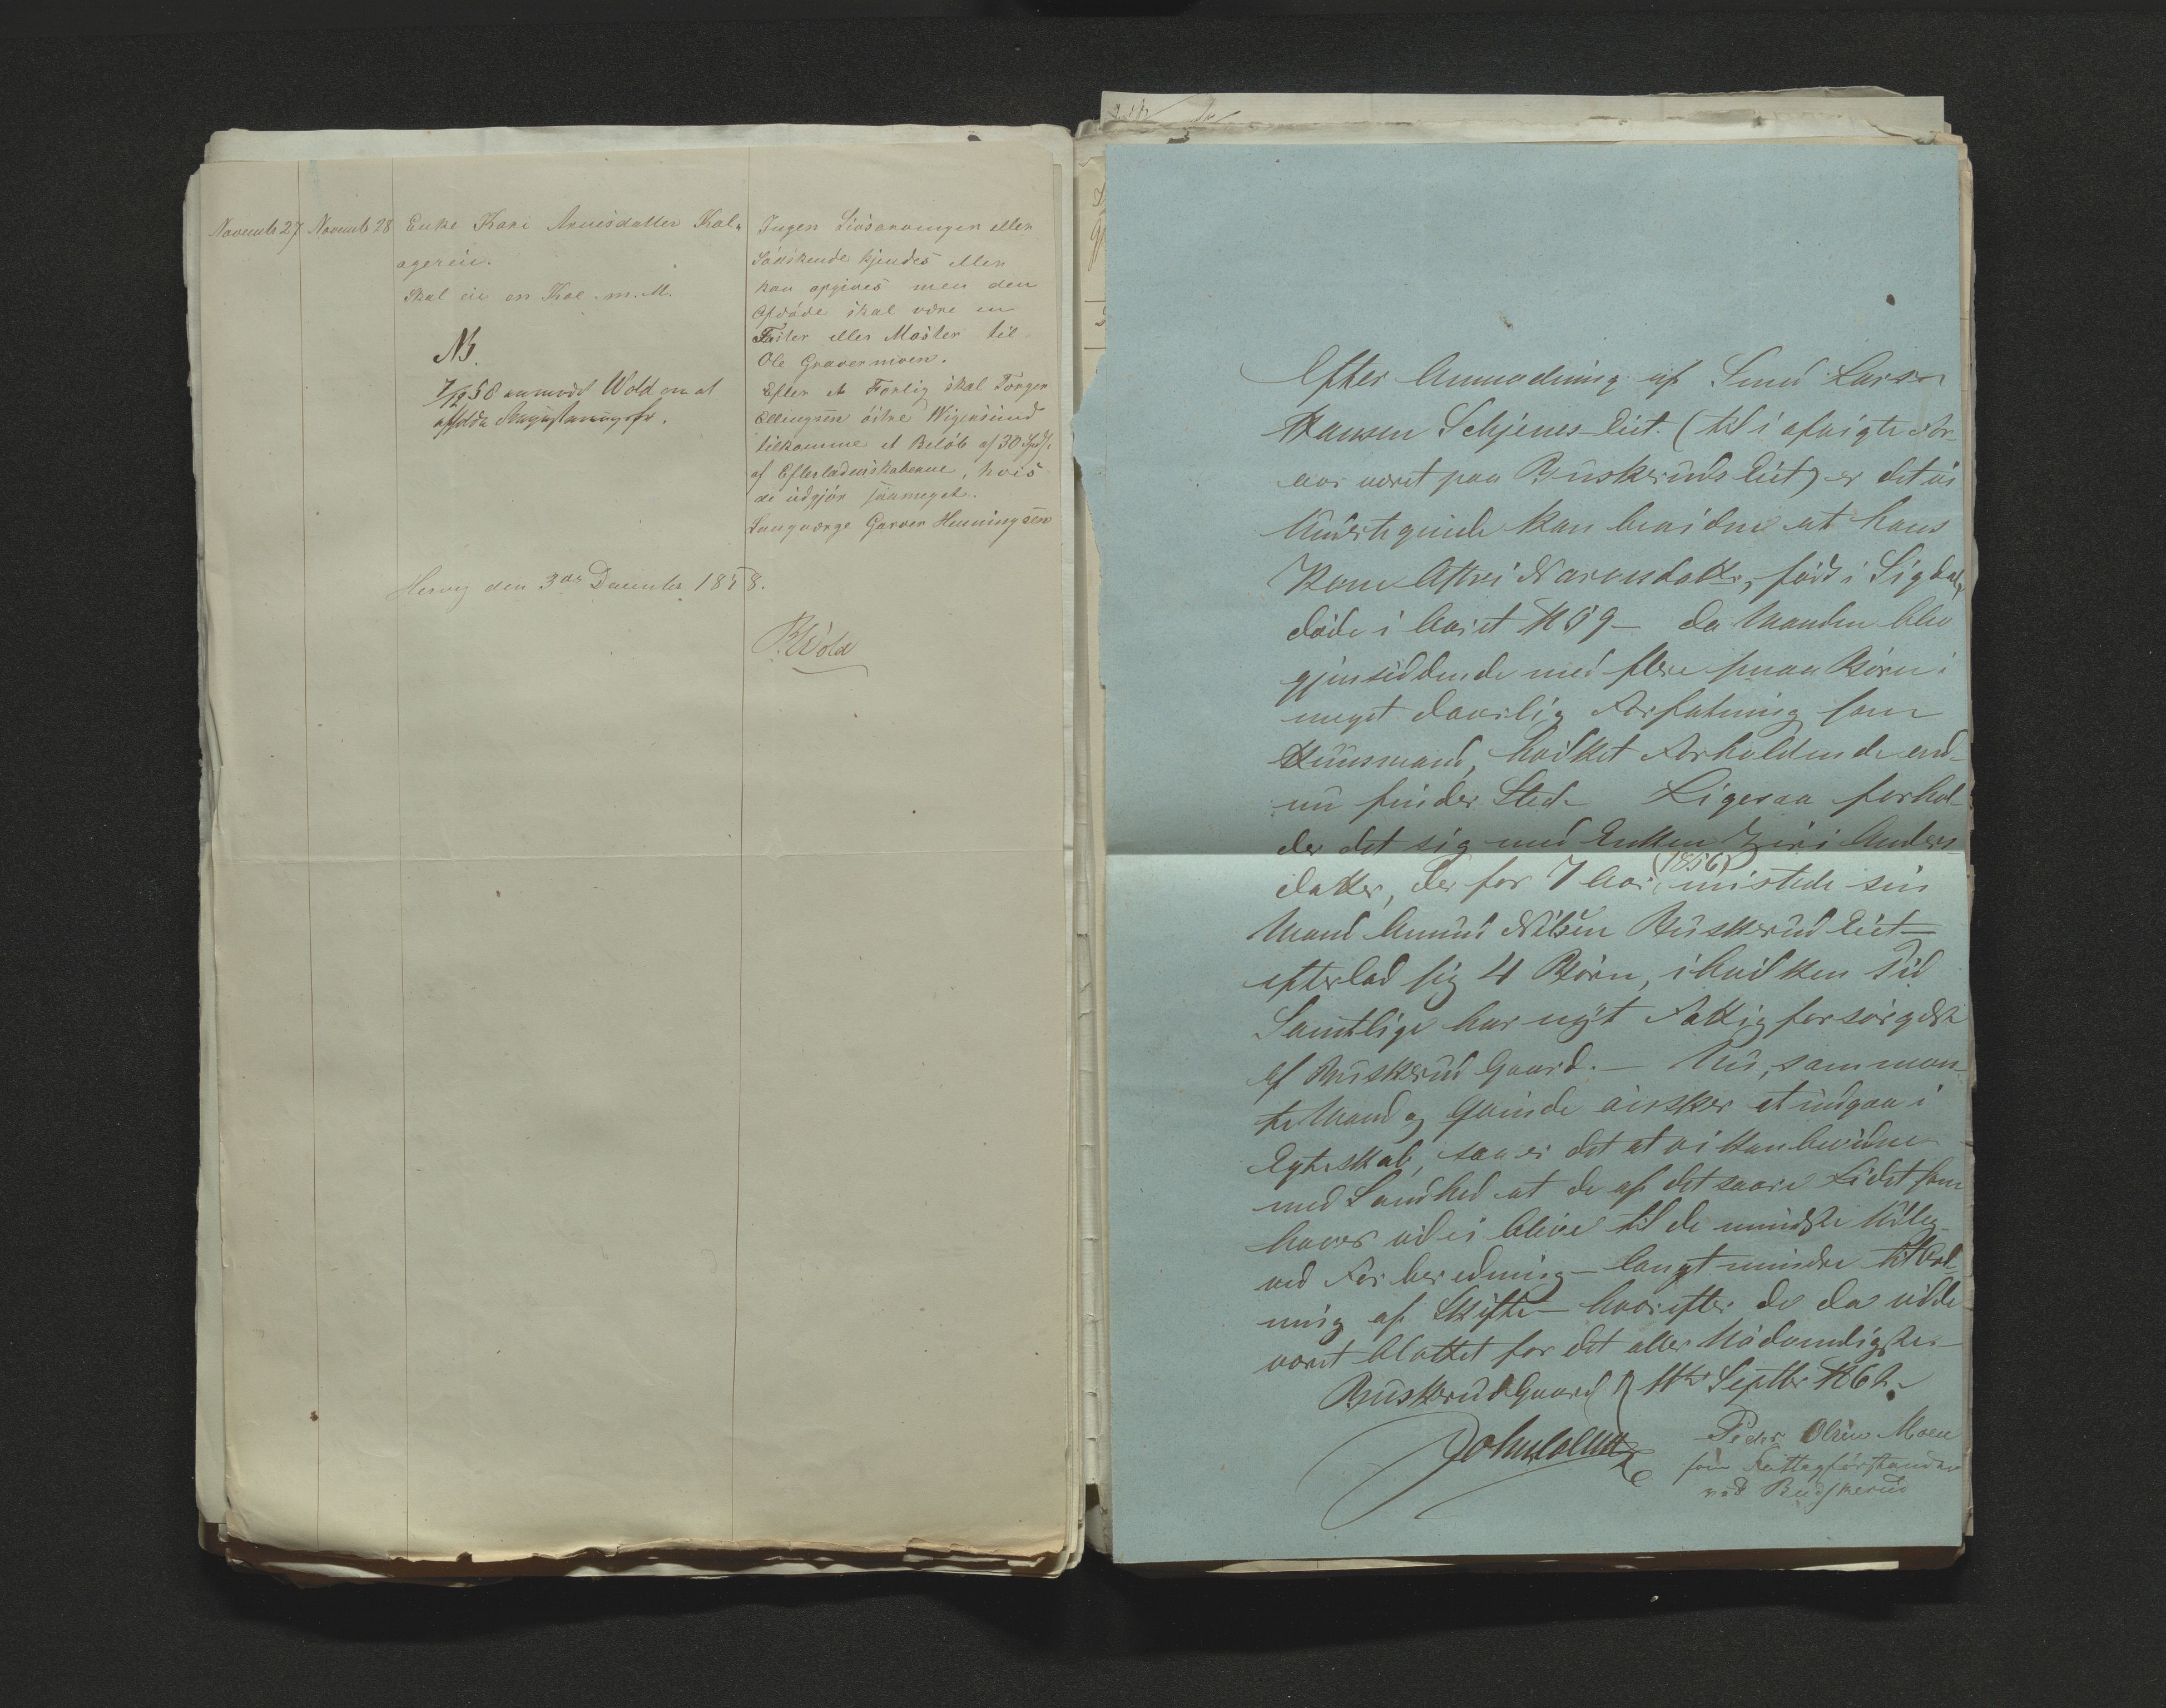 Novemb 27 Novemb 28 Enke Kari Arnesdatter Kol-
agereie.
Skal eie en Koe m. M.
NB.
7/12 58 anmodet Wold om at
afholde
Ingen Livsarvinger eller
Södskende kjendes eller
kan opgives men den
Afdöde skal være en
Faster eller Moster til
Ole Gravermoen.
Efter et Forlig skal Torger
Ellingsen östre Wigersund
tilkomme et Belöb af 30 Spd.
af Efterladenskaberne, hvis
de udgjör saameget.
Laugværge Garver Henningsen
Hervig den 3de December 1858.
B. Wold
Efter Anmodning af Lars
Hansen Schjenes-Eiet (til i afvigte For-
aar været paa Buskeruds Eiet) er det vi
Undertegnede kan bevidne at hans
Kone Astri Narvesdatter, föd i Sigdal,
döde i Aaret 1859 – da Manden blev
gjensiddende med flere smaa Börn i
meget daarlig Forfatning som
Huusmand, hvilket Forhold endnu end-
nu finder Sted – Ligesaa forhol-
der det sig med Enken Siri Anders-
datter, der for 7 Aar (1856) mistede sin
Mand Amund Nilsen Buskerud Eiet –
efterlod sig 4 Börn, i hvilken Tid
Samtlige har nydt Fattigforsörgelse
af Buskerud Gaard. – Nu, som mon-
te Mand og Qvinde önsker at indgaa i
Egteskab, saa er det at vi kan bevidne
med Sandhed at de af det saare Lidet som
haves vil ei blive til de mindste Udlæg
ved Forberedning – langt mindre tilhold-
ning af Skifte – hvorefter de da vilde
været blottet for det aller Nödvendigste –
Buskerud Gaard d. 11te Septbr 1862.
John Collett
Peder Olsen Moen
som Fattigforstander
ved Budskerud